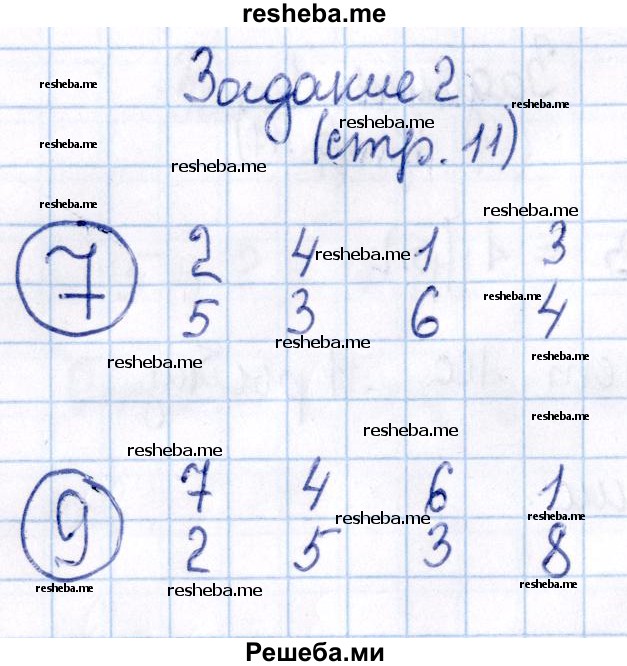 resheba.me
resheba.me
Задание 2
resheba.me
resheba.me
resheba.me
(стр. 11)
resheba.me
resheba.me
resheba.me
7 2 4 1 3
resheba.me
resheba.me
5 3 6 4
resheba.me
resheba.me
resheba.me
resheba.me
resheba.me
resheba.me
9 7 4 6 1
resheba.me
resheba.me
2 5 3 8
resheba.me
resheba.me
resheba.me
Решеба.ми